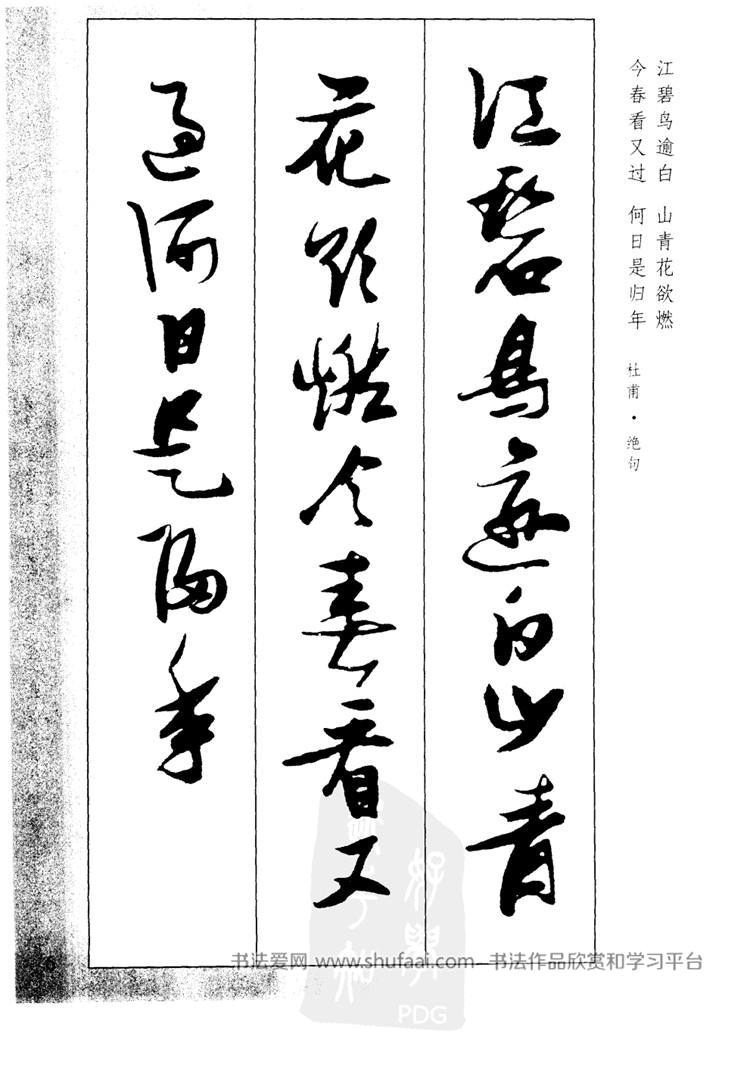 江碧鸟逾白　山青花欲燃
今春看又过　何日是归年
杜甫·绝句
江碧鳥逾白山青
花欲燃今春看又
過何日是歸年
6
书法爱网 www.shufaai.com 书法作品欣赏和学习平台
PDG